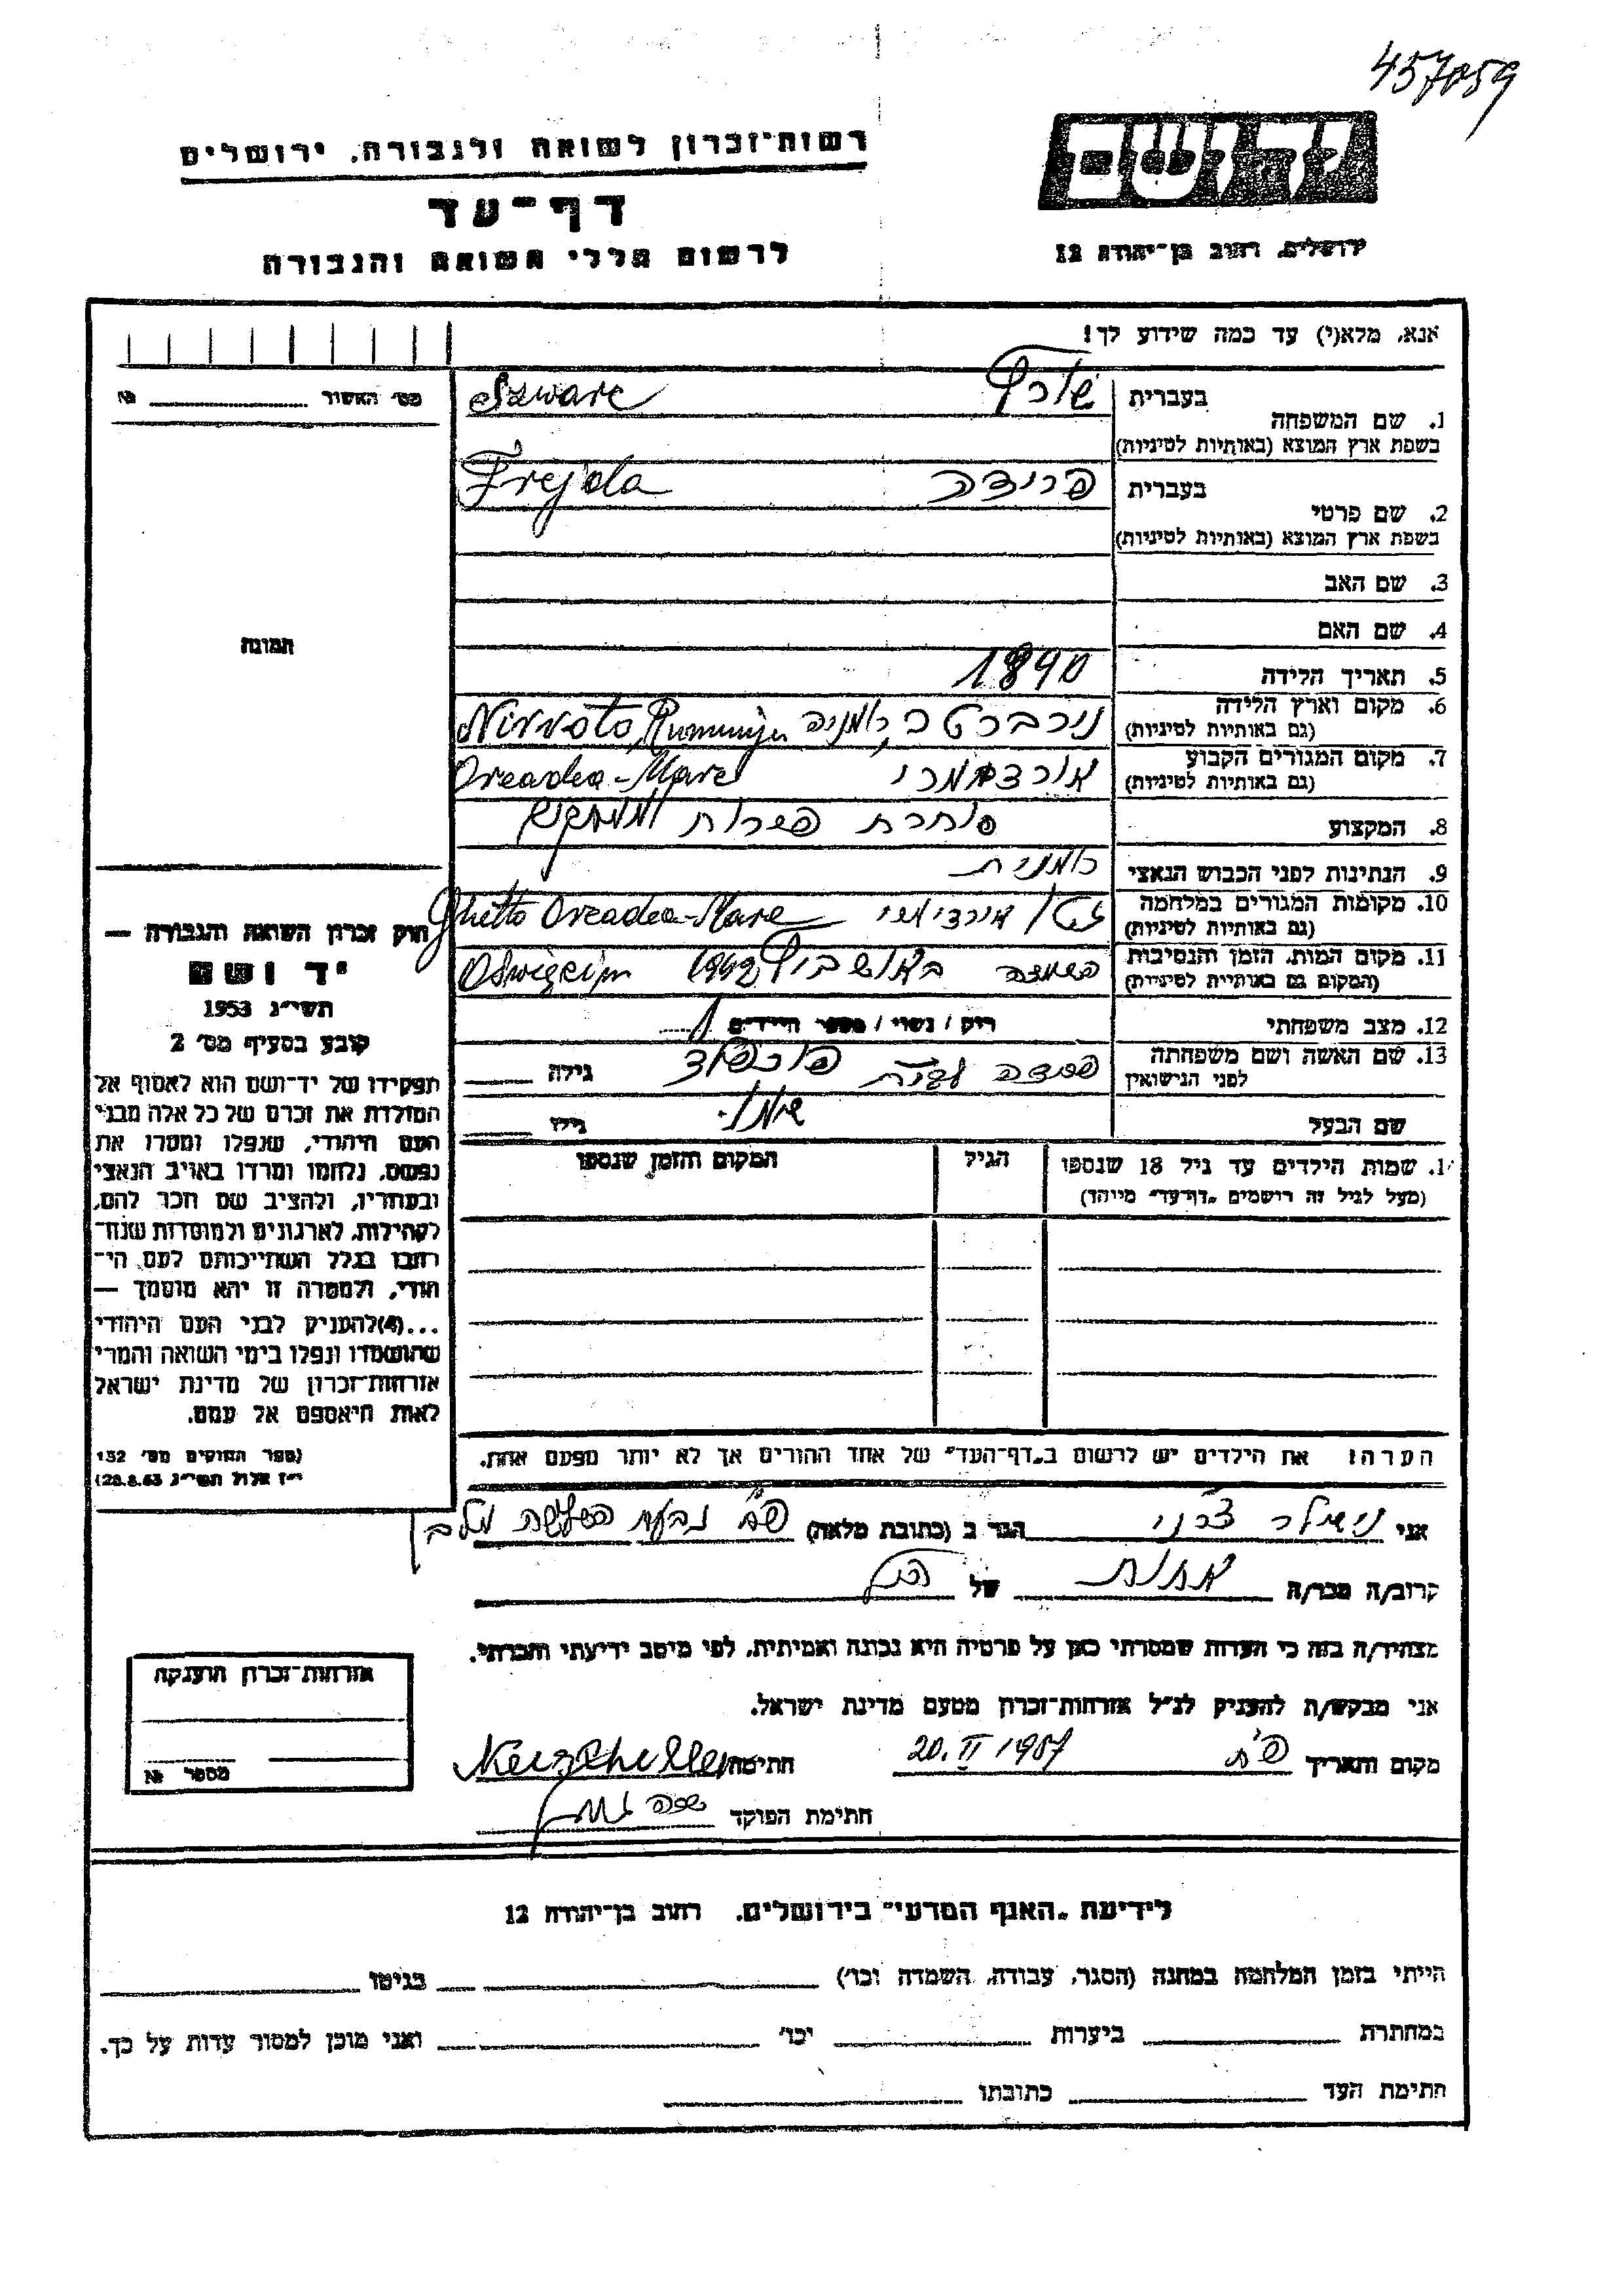 457059
יד ושם
רשות־זכרון לשואה ולגבורה, ירושלים
דף־עד
לרשום חללי השואה והגבורה
ירושלים, רחוב בן־יהודה 12
אנא, מלא(י) עד כמה שידוע לך!
מס׳ האשור № 
בעברית
שורץ Szwarc
1. שם המשפחה
בשפת ארץ המוצא (באותיות לטיניות)
בעברית
פרידה Frejda
2. שם פרטי
בשפת ארץ המוצא (באותיות לטיניות)
3. שם האב
4. שם האם
תמונה
5. תאריך הלידה 1890
6. מקום וארץ הלידה
(גם באותיות לטיניות)
רומניה
7. מקום המגורים הקבוע
(גם באותיות לטיניות)
Oreadea-Mare
8. המקצוע סוחרת פירות
9. הנתינות לפני הכבוש הנאצי רומנית
10. מקומות המגורים במלחמה
(גם באותיות לטיניות)
Ghetto Oreadea-Mare
11. מקום המות, הזמן והנסיבות
(המקום גם באותיות לטיניות)
באושביץ Oswięcim
12. מצב משפחתי רוק / נשוי / מספר הילדים 1
13. שם האשה ושם משפחתה
לפני הנישואין
לבית גילה
שם הבעל גילו
1. שמות הילדים עד גיל 18 שנספו הגיל המקום והזמן שנספו
(מעל לגיל זה רושמים „דף־עד״ מיוחד)
הערה: את הילדים יש לרשום ב„דף־העד״ של אחד ההורים אך לא יותר מפעם אחת.
חוק זכרון השואה והגבורה —
יד ושם
תשי״ג 1953
קובע בסעיף מס׳ 2
תפקידו של יד־ושם הוא לאסוף אל
המולדת את זכרם של כל אלה מבני
העם היהודי, שנפלו ומסרו את
נפשם, נלחמו ומרדו באויב הנאצי
ובעוזריו, ולהציב שם וזכר להם,
לקהילות, לארגונים ולמוסדות שנח־
רבו בגלל השתייכותם לעם הי־
הודי, ולמטרה זו יהא מוסמך —
...(4) להעניק לבני העם היהודי
שהושמדו ונפלו בימי השואה והמרי
אזרחות־זכרון של מדינת ישראל
לאות היאספם אל עמם.
(ספר החוקים מס׳ 132
י״ז אלול תשי״ג 28.8.53)
אני הגר ב (כתובת מלאה) פ״ת גבעת השלשה
קרוב/ה מכר/ה אחות של הנ״ל
מצהיר/ה בזה כי העדות שמסרתי כאן על פרטיה היא נכונה ואמיתית, לפי מיטב ידיעתי והכרתי.
אני מבקש/ת להעניק לנ״ל אזרחות־זכרון מטעם מדינת ישראל.
מקום ותאריך פ״ת 20. II 1957 חתימה
חתימת הפוקד
אזרחות־זכרון הוענקה
מספר №
לידיעת „האגף המדעי״ בירושלים, רחוב בן־יהודה 12
הייתי בזמן המלחמה במחנה (הסגר, עבודה, השמדה וכו׳) בגיטו
במחתרת ביערות וכו׳ ואני מוכן למסור עדות על כך.
חתימת העד כתובתו